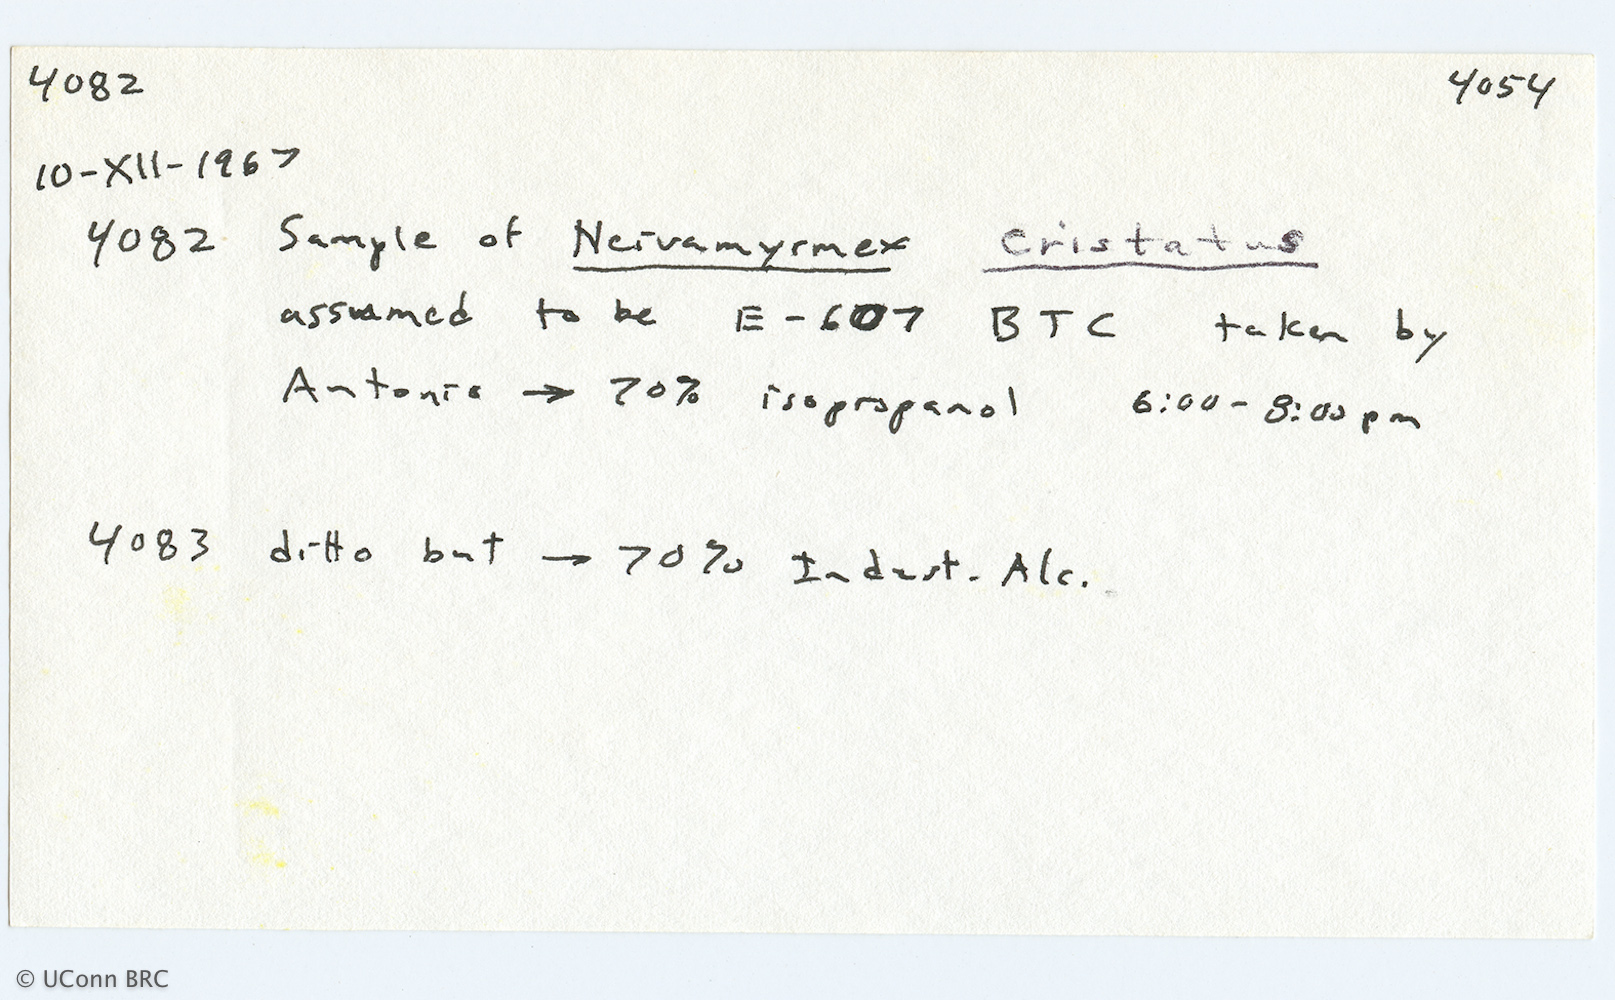 4082 4054
10-XII-1967
4082 Sample of Neivamyrmex cristatus
assumed to be E-607 BTC taken by
Antonio → 70% isopropanol 6:00-8:00 pm
4083 ditto but → 70% Indust. Alc.
© UConn BRC